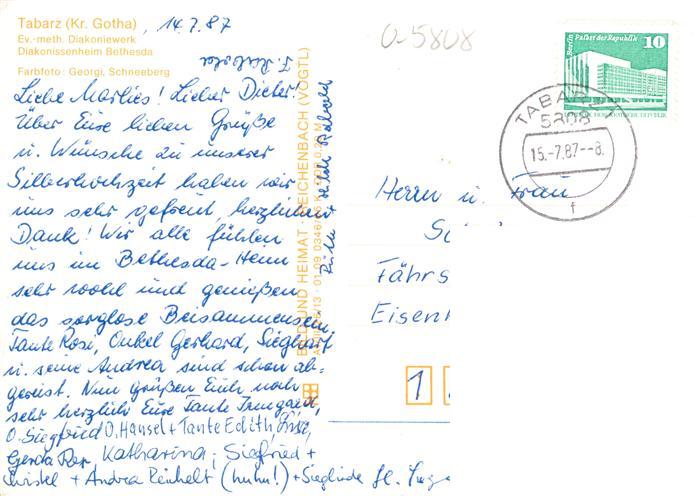 Tabarz (Kr. Gotha)
Ev.-meth. Diakoniewerk
Diakonissenheim Bethesda
Farbfoto: Georgi, Schneeberg
14.7.87
Liebe Marlies! Lieber Dieter!
Über Eure lieben Grüße
u. Wünsche zu unserer
Silberhochzeit haben wir
uns sehr gefreut, herzlichen
Dank! Wir alle fühlen
uns im Bethesda-Heim
sehr wohl und genießen
das sorglose Beisammensein.
Tante Rosi, Onkel Gerhard, Sieghart
u. seine Andrea sind schon ab-
gereist. Nun grüßen Euch noch
sehr herzlich Eure Tante Irmgard,
O. Siegfried, O. Hansel + Tante Edith,
Katharina; Siegfried +
+ Andrea Reinhelt (huhu!) + Sieglinde
BILD UND HEIMAT REICHENBACH (VOGTL)
0-5808
Berlin Palast der Republik
10
DEUTSCHE DEMOKRATISCHE REPUBLIK
TABARZ
5808
15.-7.87--8.
f
Herrn u. Frau
Fährs
Eisen
1